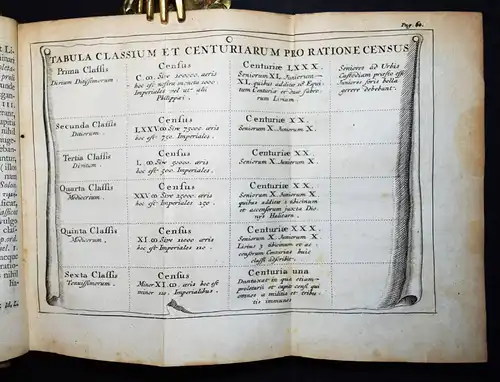 Pag. 60.
TABULA CLASSIUM ET CENTURIARUM PRO RATIONE CENSUS
Prima Classis
Divium Ditissimorum.
Census
C. ∞. Sive 100000. aeris
hoc est nostra moneta 1000
Imperiales vel ut alii
Philippei.
Centuriæ LXXX.
Seniorum XL. Juniorum
XL, quibus additæ 18 Equi-
tum Centuriæ et duæ fabro-
rum Livium.
Seniores ad Urbis
Custodiam præsto esse
Juniores foris bella
gerere debebant.
Secunda Classis
Ditiorum.
Census
LXXV.∞ Sive 75000. aeris
hoc est 750. Imperiales.
Centuriæ XX.
Seniorum X. Juniorum X.
Tertia Classis
Ditium.
Census
L. ∞ Sive 50000. aeris
hoc est 500. Imperiales.
Centuriæ XX.
Seniorum X. Juniorum X.
Quarta Classis
Mediocrium.
Census
XXV ∞ Sive 25000. aeris
hoc est Imperiales 250.
Centuriæ XX.
Seniorum X. Juniorum X.
quibus additæ 2 tibicinum
et accensorum juxta Dio-
nys Halicarn.
Quinta Classis
Census
XI.∞ Sive 11000 aeris
hoc est Imperiales 110.
Centuriæ XXX.
Seniorum X. Juniorum X.
Livius 3 tibicinum et ac
censorum Centurias huic
classi adscribit.
Sexta Classis
Tenuissimorum.
Census
Minor XI.∞ aeris hoc est
minor 110. Imperialibus.
Centuria una
Duntaxat in qua etiam
proletarii et capite censi qui
omnes a militia et tribu-
tis immunes